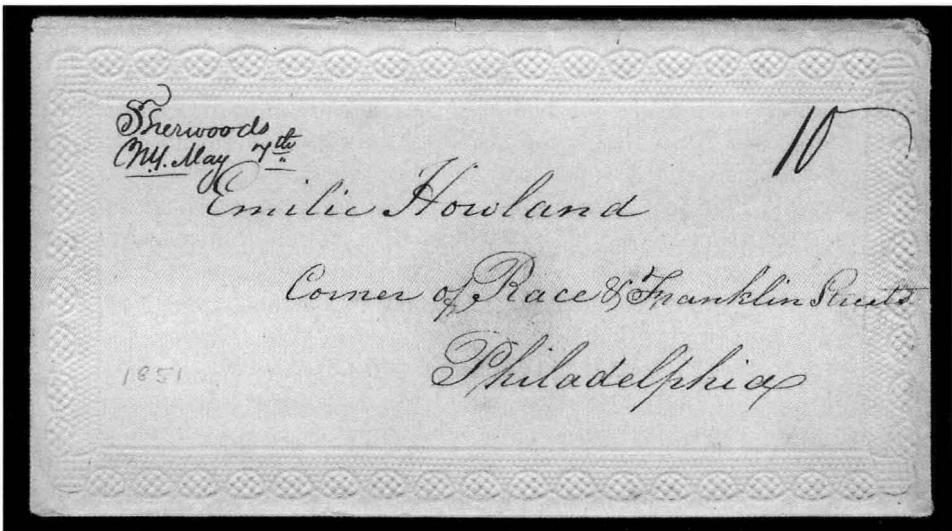 Sherwoods
N.Y. May 7th
10
Emilie Howland
Corner of Race & Franklin Streets
Philadelphia
1851